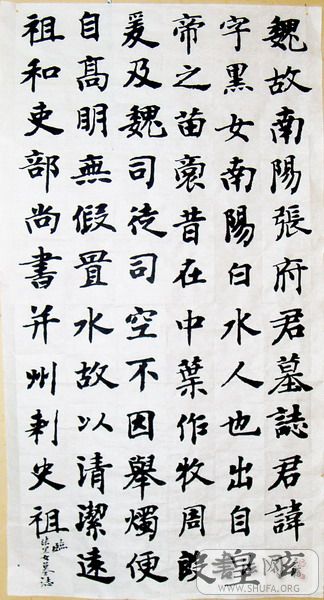 魏故南陽張府君墓誌君諱玄
字黑女南陽白水人也出自皇
帝之苗裔昔在中葉作牧周殷
爰及魏司徒司空不因舉燭便
自高明無假置水故以清潔遠
祖和吏部尚書并州刺史祖
臨
張黑女墓誌
WWW.SHUFA.ORG